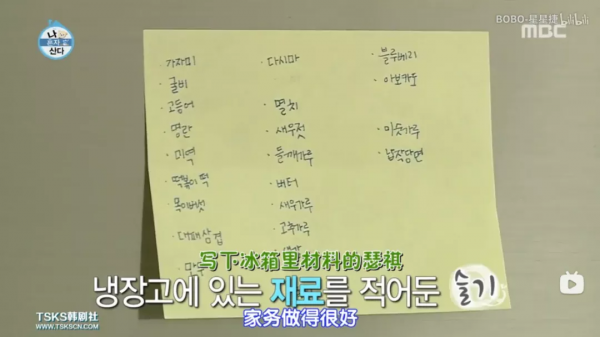 BOBO-星星捷
bilibili
MBC
나 혼자
산다
· 가자미
· 굴비
· 고등어
· 명란
· 미역
· 떡볶이 떡
· 목이버섯
· 대패삼겹
· 다시마
· 멸치
· 새우젓
· 들깨가루
· 버터
· 새우가루
· 고추가루
· 블루베리
· 아보카도
· 미숫가루
· 납작당면
写下冰箱里材料的瑟祺
냉장고에 있는 재료를 적어둔 슬기
TSKS韩剧社
WWW.TSKSCN.COM
家务做得很好